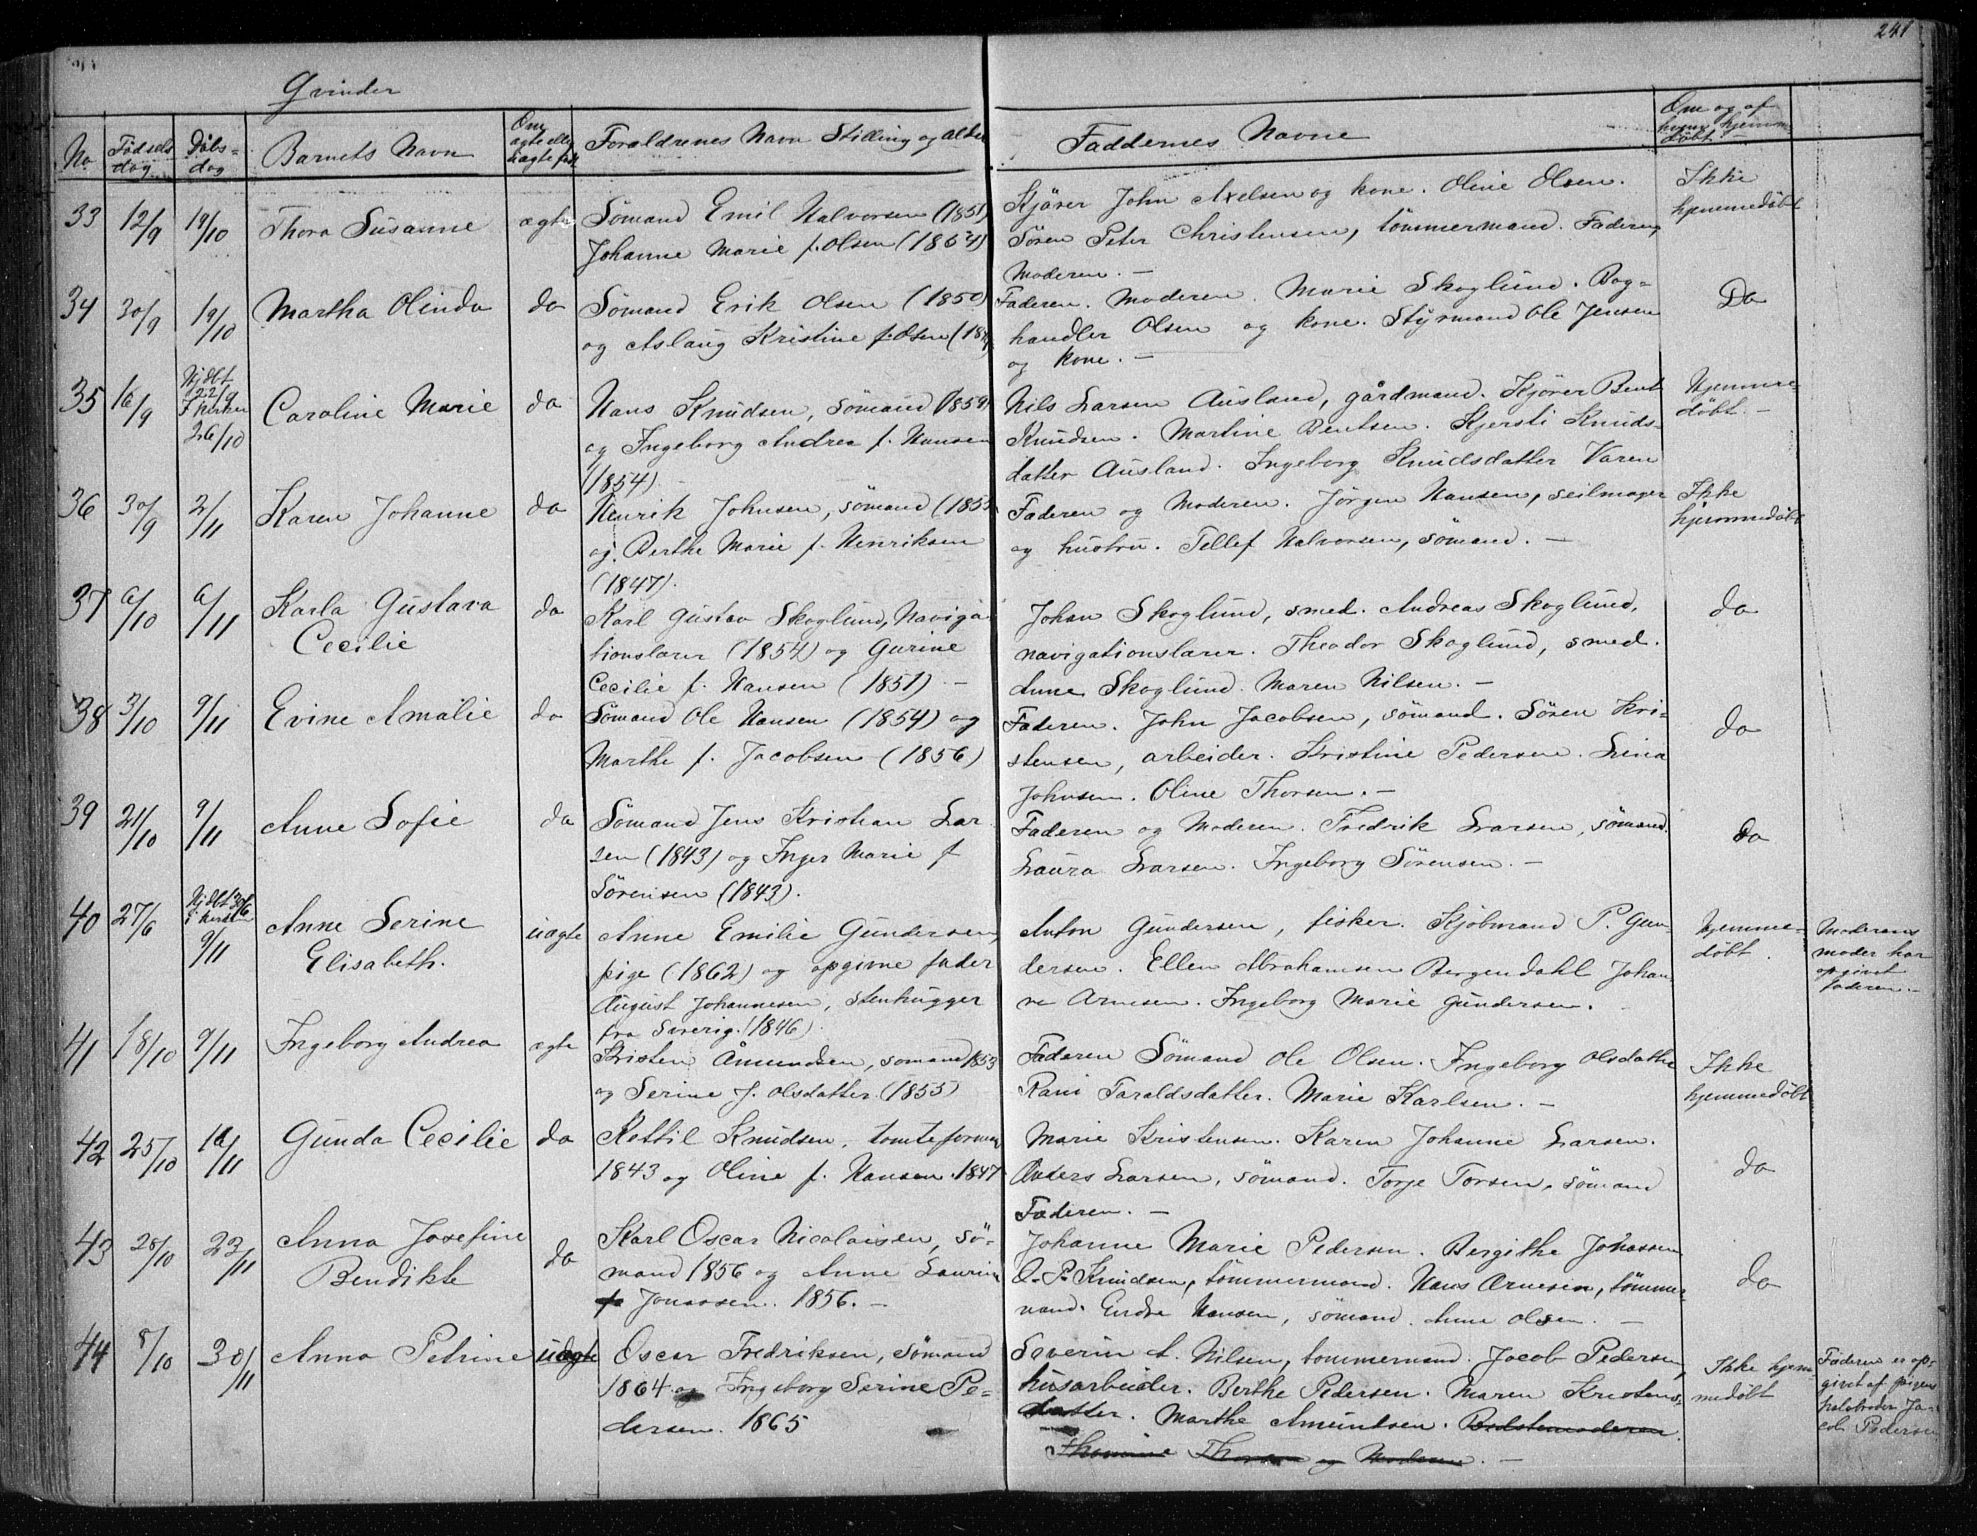 241
Qvinder
No
Fødsels dag
Døbs-dag
Barnets Navn
Om ægte eller uægte fød
Forældrenes Navn Stilling og Alder
Faddernes Navne
Om og af hvem hjemmedøbt
33 12/9 19/10 Thora Susanne ægte Sømand Emil Halvorsen (1851)
Johanne Marie f. Olsen (1854)
Kjører John Axelsen og kone. Oline Olsen.
Søren Peter Christensen, tømmermand. Faderen,
Moderen. —
Ikke
hjemmedøbt
34 30/9 19/10 Martha Olinda do Sømand Erik Olsen (1850)
og Aslaug Kristine f. Olsen (18
Faderen. Moderen. Marie Skoglund. Bog-
handler Olsen og kone. Styrmand Ole Jensen
og kone. —
Do
35 16/9 Hjdbt 22/9 I kirken 26/10 Caroline Marie do Hans Knudsen, sømand 1859
og Ingeborg Andrea f. Hansen
(1854).
Nils Larsen Ausland, gårdmand. Kjører Bent
Knudsen. Martine Bentsen. Kjersti Knuds-
datter Ausland. Ingeborg Knudsdatter Varen
Hjemme-
døbt. —
36 30/9 2/11 Karen Johanne do Henrik Johnsen, sømand (1855
og Berthe Marie f. Henriksen
(1847).
Faderen og Moderen. Jørgen Hansen, seilmager
og hustru. Tellef Halvorsen, sømand. —
Ikke
hjemmedøbt
37 6/10 6/11 Karla Gustava
Cecilie
do Karl Gustav Skoglund, Naviga-
tionslærer (1854) og Gurine
Cecilie f. Hansen (1851). —
Johan Skoglund, smed. Andreas Skoglund,
navigationslærer. Theodor Skoglund, smed.
Anne Skoglund. Maren Nilsen. —
do
38 3/10 9/11 Evine Amalie do Sømand Ole Hansen (1854) og
Marthe f. Jacobsen (1856)
Faderen. John Jacobsen, sømand. Søren Kri-
stensen, arbeider. Kristine Pedersen. Lina
Johnsen. Oline Thorsen. —
do
39 21/10 9/11 Anne Sofie do Sømand Jens Kristian Lar-
sen (1843) og Inger Marie f
Sørensen (1843).
Faderen og Moderen. Fredrik Larsen, sømand.
Laura Larsen. Ingeborg Sørensen. —
do
40 27/6 Hjdbt 30/6 i kirken 9/11 Anne Serine
Elisabeth.
uægte Anne Emilie Gundersen,
pige (1862) og opgivne fader
August Johannesen, stenhugger
fra Sverig. (1846).
Anton Gundersen, fisker. Kjøbmand P. Gun-
dersen. Ellen Abrahamsen Bergendahl Johan-
ne Arnesen. Ingeborg Marie Gundersen.
Hjemme-
døbt.
Moderens
moder har
opgivet
faderen. —
41 18/10 9/11 Ingeborg Andrea ægte Kristen Åmundsen, sømand 1853
og Serine f. Olsdatter (1855)
Faderen Sømand Ole Olsen. Ingeborg Olsdatter
Rani Taraldsdatter. Marie Karlsen. —
Ikke
hjemmedøbt
42 25/10 16/11 Gunda Cecilie do Kettil Knudsen, tomteformand
1843 og Oline f. Hansen. 1847
Marie Kristensen. Karen Johanne Larsen.
Anders Larsen, sømand. Torje Torsen, sømand
Faderen. —
do
43 28/10 23/11 Anna Josefine
Bendikte
do Karl Oscar Nicolaisen, sø-
mand 1856 og Anne Laurine
f Jonassen. 1856. —
Johanne Marie Pedersen. Bergithe Johnssen
O. P. Knudsen, tømmermand. Hans Arnesen, tømmer-
mand. Endre Hansen, sømand. Anne Olsen. —
do
44 8/10 30/11 Anna Petrine uægte Oscar Fredriksen, sømand
1864 og Ingeborg Serine Pe-
dersen. 1865
Severin A. Nilsen, tømmermand. Jacob Pedersen,
husarbeider. Berthe Pedersen. Maren Kristens-
datter. Marthe Amundsen. Bedstemoderen
Thomine Thorsen og Moderen. —
Ikke hjem-
medøbt
Faderen er op-
givet af pigens
halvbroder Ja-
cob Pedersen